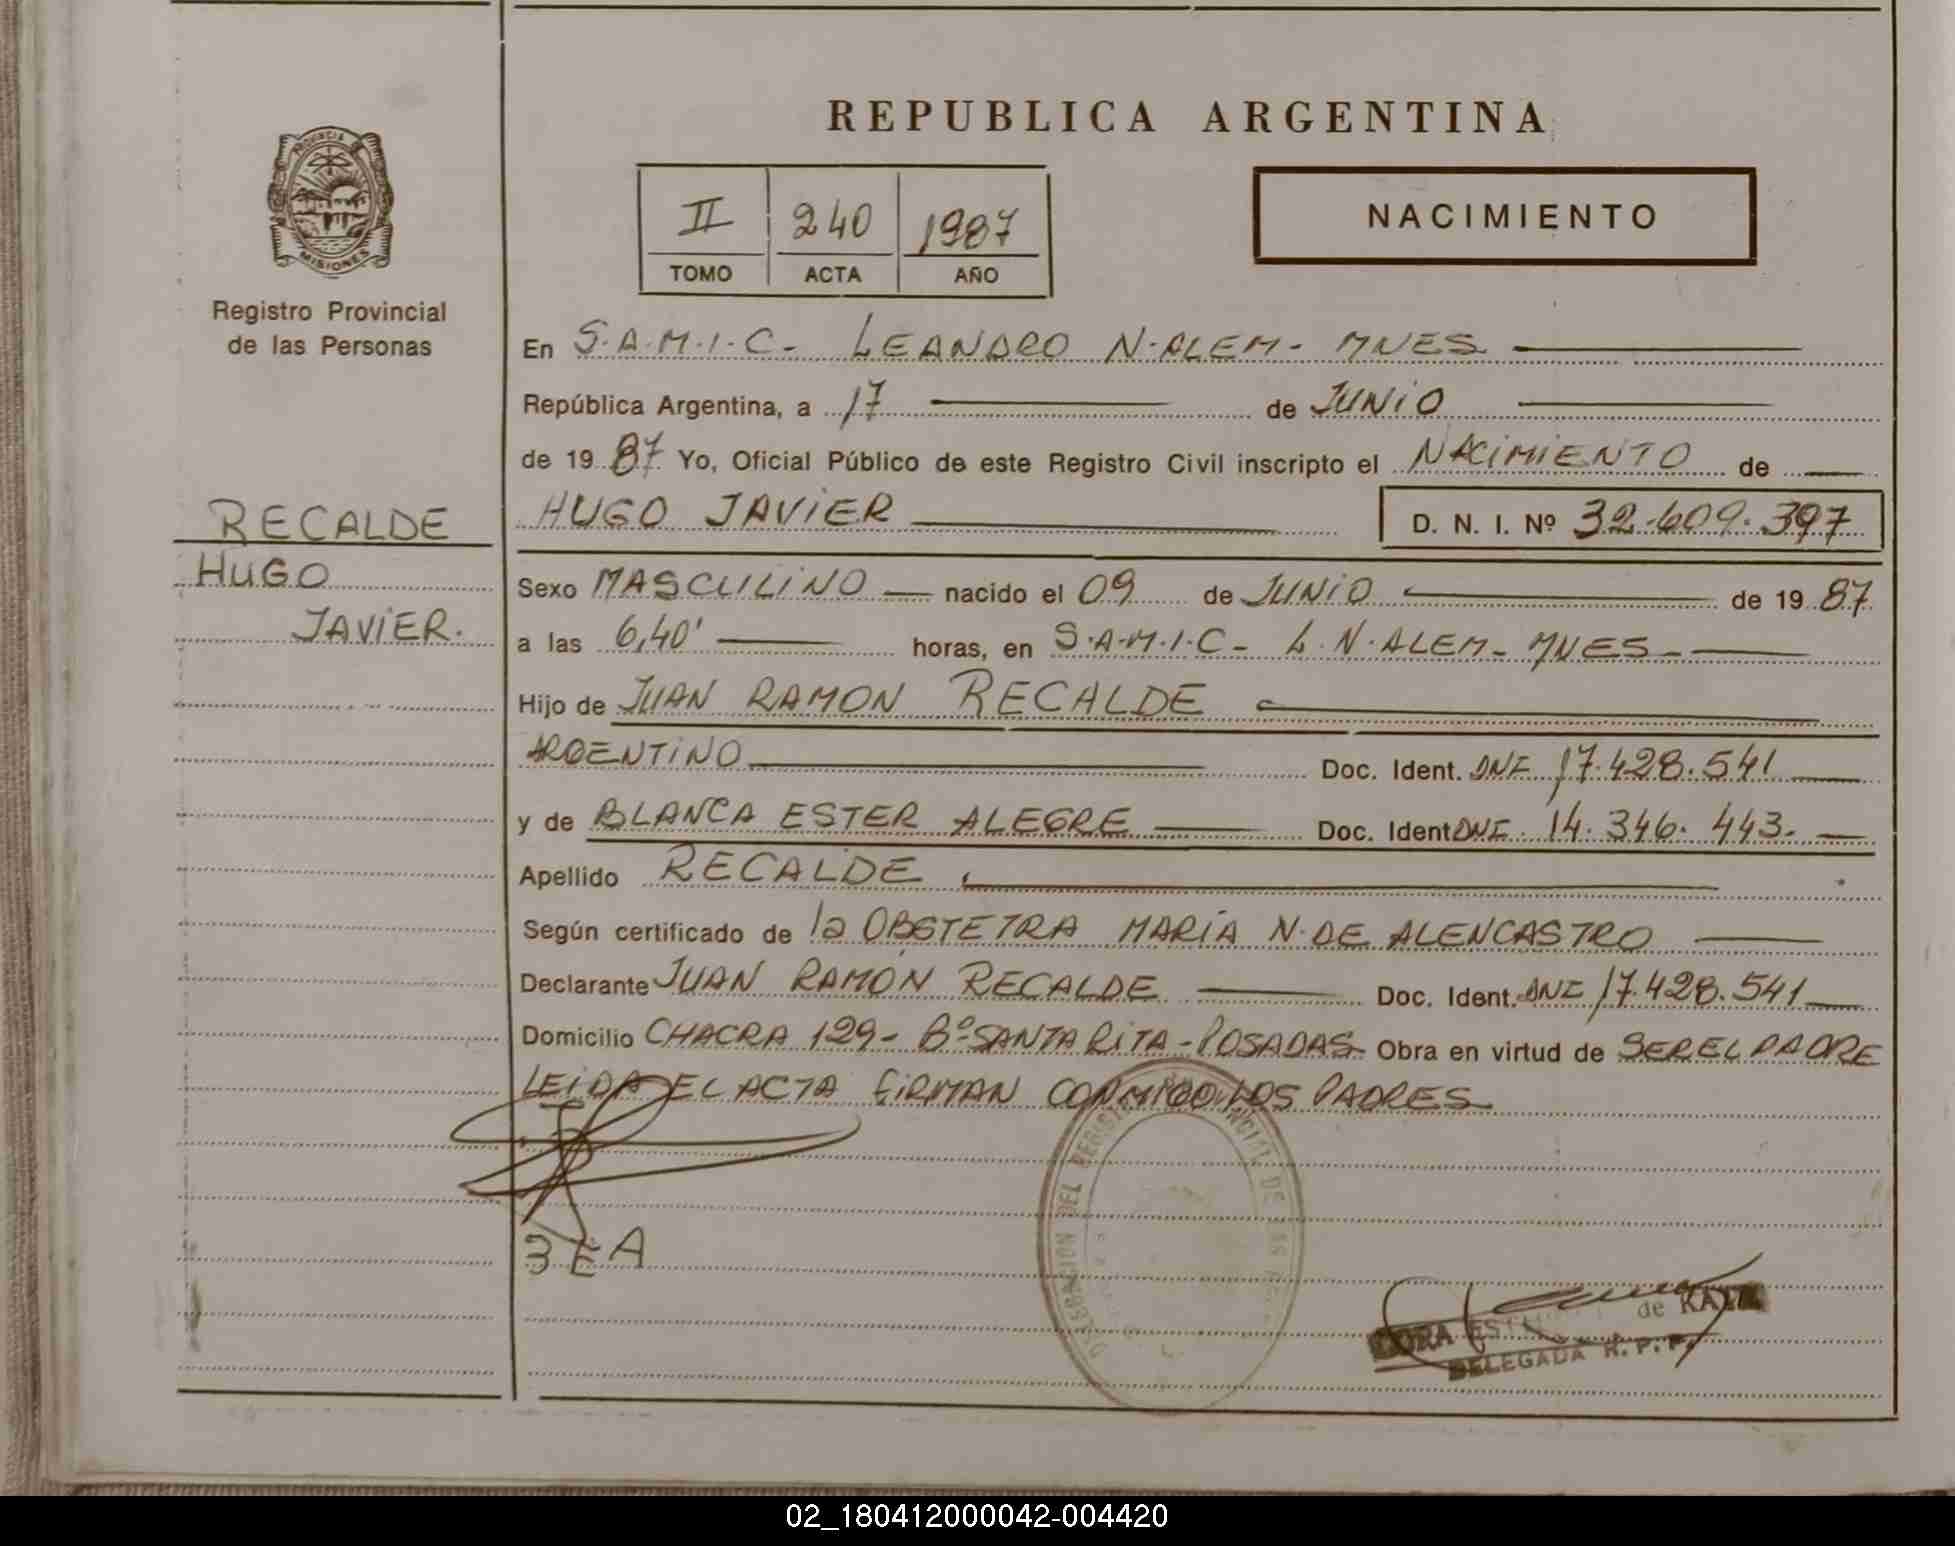 REPUBLICA ARGENTINA
PROVINCIA
MISIONES
Registro Provincial
de las Personas
II 240 1987
TOMO ACTA AÑO
NACIMIENTO
En S.A.M.I.C- LEANDRO N.ALEM- MNES
República Argentina, a 17 de JUNIO
de 1987 Yo, Oficial Público de este Registro Civil inscripto el NACIMIENTO de
HUGO JAVIER D. N. I. Nº 32.609.397
RECALDE
HUGO
JAVIER.
Sexo MASCULINO nacido el 09 de JUNIO de 1987
a las 6,40' horas, en S.A.M.I.C- L.N.ALEM- MNES
Hijo de JUAN RAMON RECALDE
ARGENTINO Doc. Ident. DNI 17.428.541
y de BLANCA ESTER ALEGRE Doc. Ident DNI 14.346.443.
Apellido RECALDE
Según certificado de la OBSTETRA MARÍA N.DE ALENCASTRO
Declarante JUAN RAMÓN RECALDE Doc. Ident. DNI 17.428.541
Domicilio CHACRA 129- Bº SANTA RITA-POSADAS Obra en virtud de SER EL PADRE
LEIDA EL ACTA FIRMAN CONMIGO LOS PADRES
BEA
DELEGACION DEL REGISTRO PROVINCIAL DE LAS
de
DELEGADA R.P.P.
02_180412000042-004420